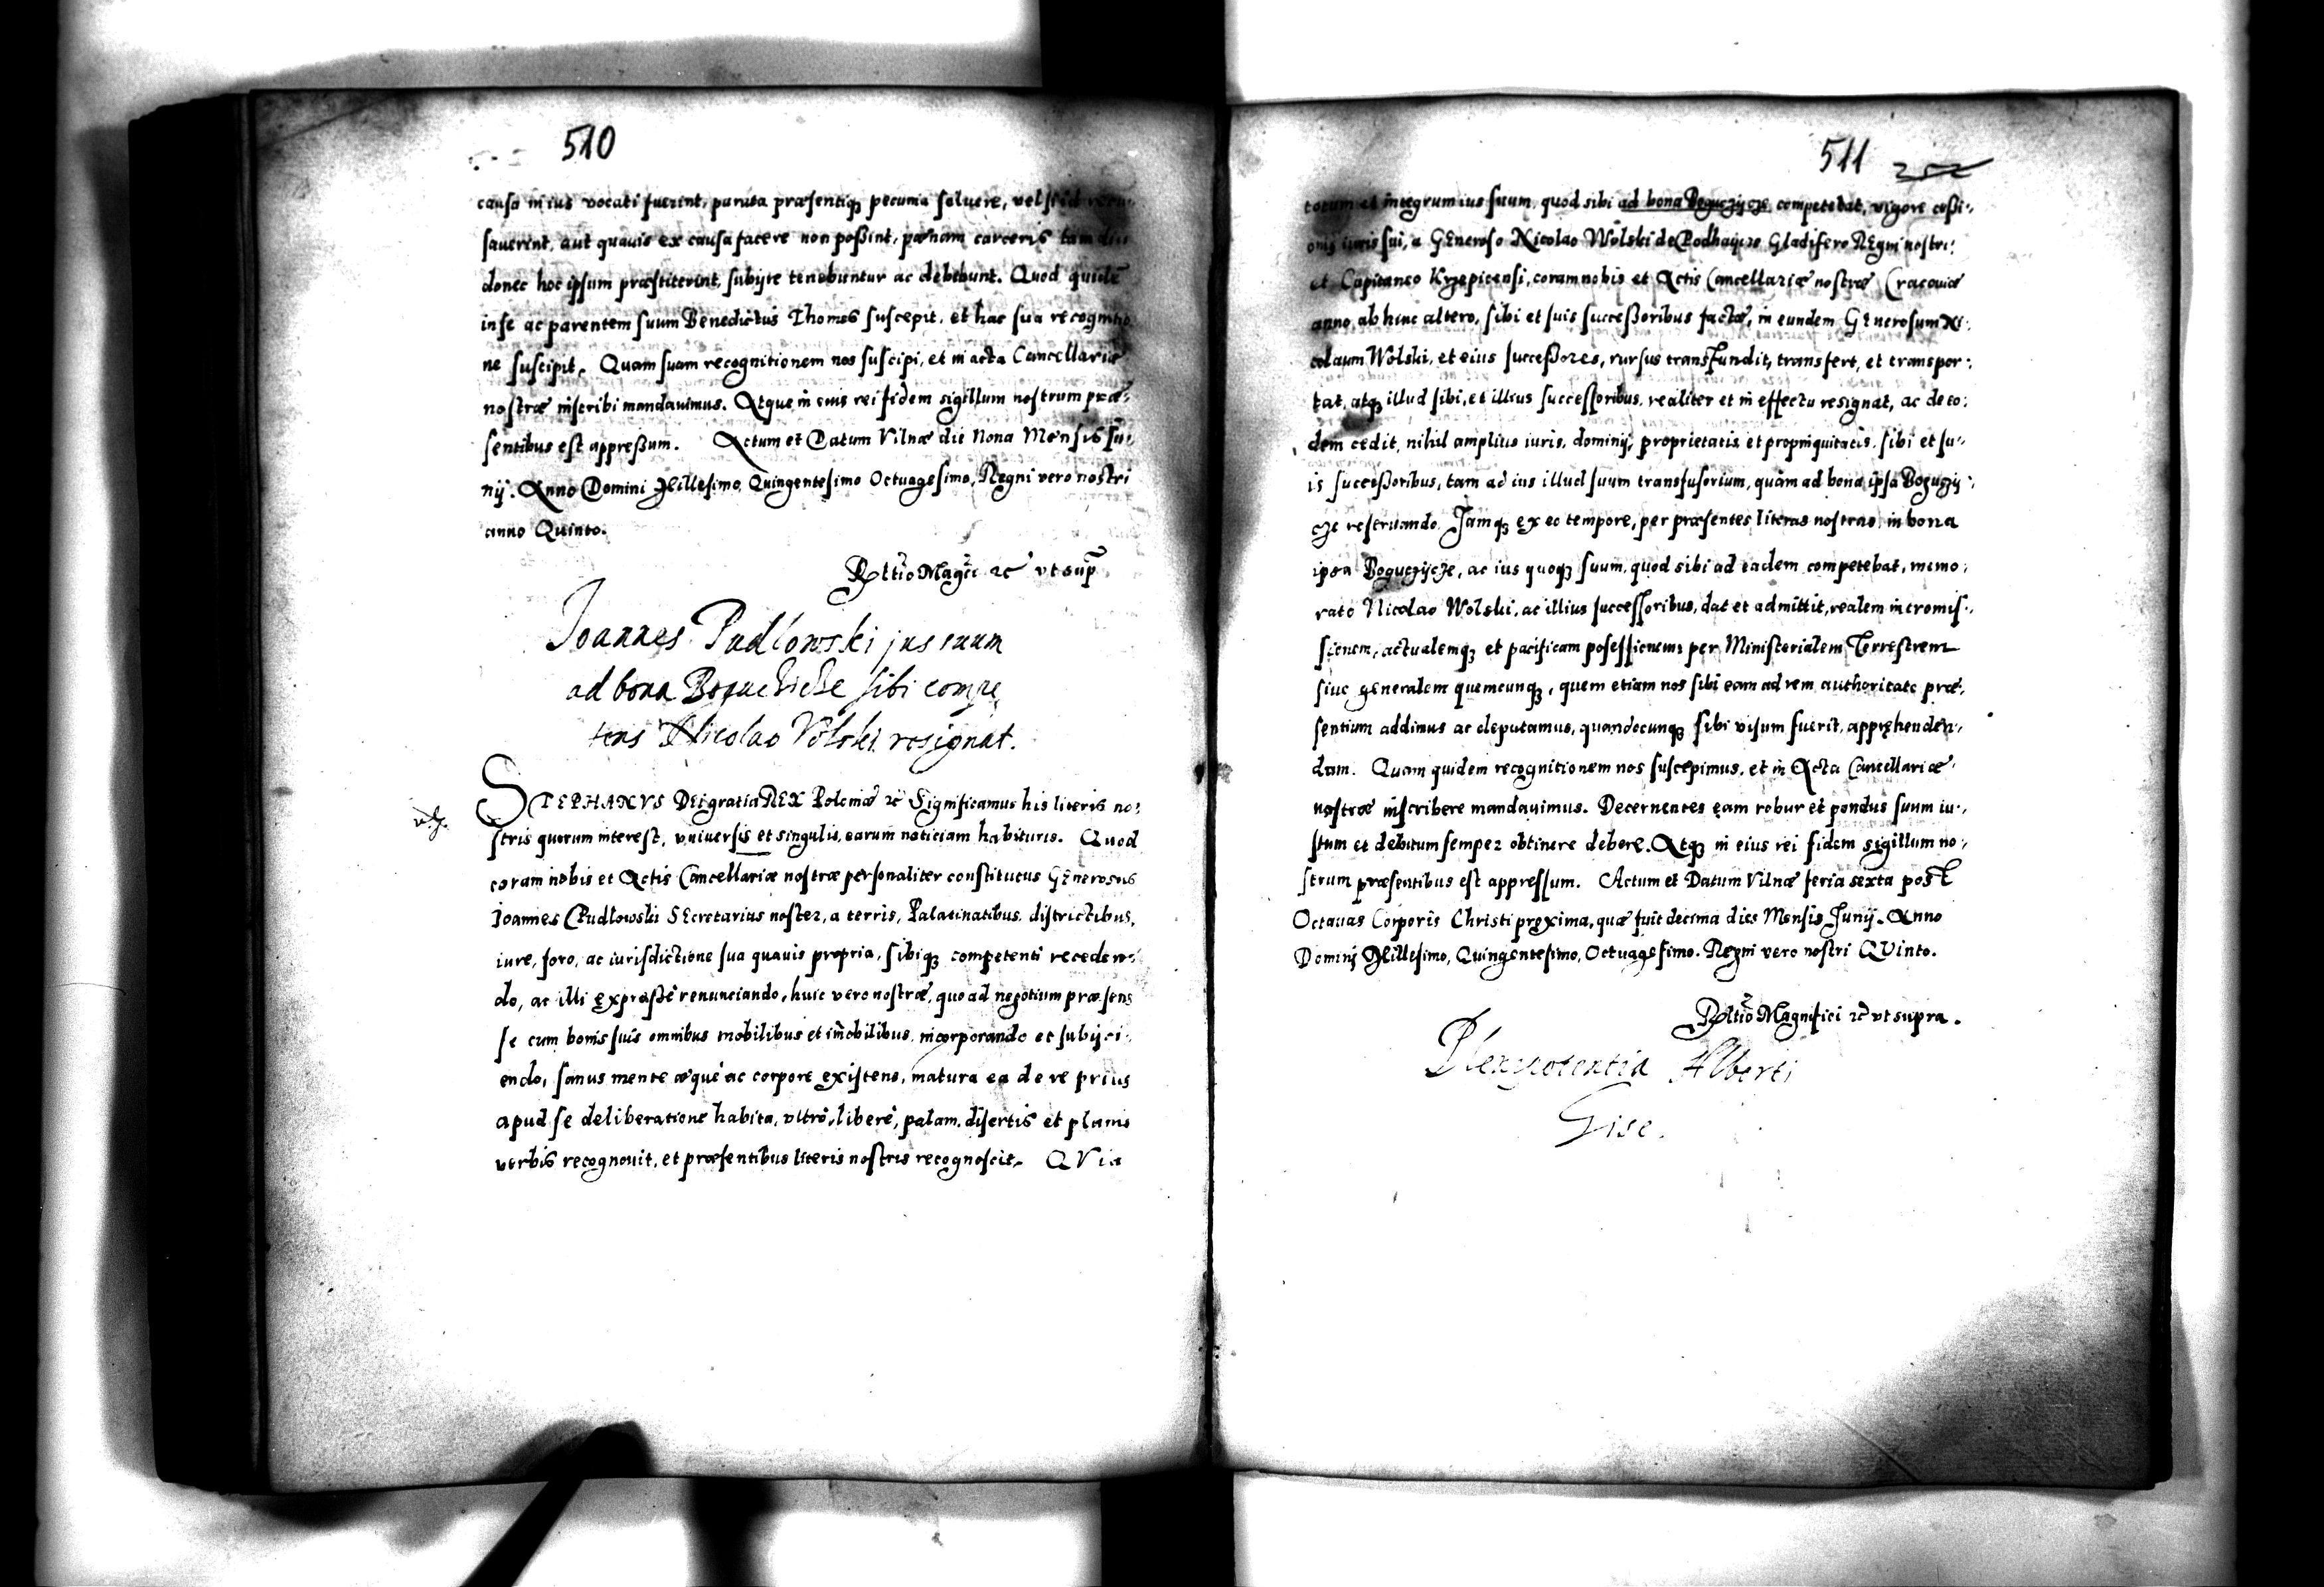 510
causa in ius vocati fuerint, parata præsentiq3 pecunia soluere, vel si id recu-
sauerint, aut quauis ex causa facere non poßint, pœnam carceris tam diu
donec hoc ipsum præstiterint, subijre tenebuntur ac debebunt. Quod quidẽ
in se ac parentem suum Benedictus Thomæ suscepit, et hac sua recognitio
ne suscipit. Quam suam recognitionem nos suscipi, et in acta Cancellariæ
nostræ inscribi mandauimus. Atque in eius rei fidem sigillum nostrum præ-
sentibus est appreßum. Actum et Datum Vilnæ die Nona Mensis Ju-
nij. Anno Domini Millesimo, Quingentesimo Octuagesimo, Regni vero nostri
anno Quinto.
Rltio Magci ac vt sup
Joannes Pudlowski jus suum
ad bona Boguchicze sibi compe
tens Nicolao Volski resignat.
STEPHANVS DEI gratia REX Poloniæ ac Significamus his literis no-
stris quorum interest, vniuersis et singulis, earum noticiam habituris. Quod
coram nobis et Actis Cancellariæ nostræ personaliter constitutus GEnerosus
Joannes Pudlowski SEcretarius noster, a terris, Palatinatibus, districtibus,
iure, foro, ac iurisdictione sua quauis propria, sibiq3 competenti receden-
do, ac illi expreßè renunciando, huic vero nostræ, quo ad negotium præsens
se cum bonis suis omnibus mobilibus et im̃obilibus, incorporando et subijci-
endo, sanus mente æquè ac corpore existens, matura ea de re prius
apud se deliberatione habita, vltrò, liberè, palam, disertis et planis
verbis recognouit, et præsentibus literis nostris recognoscit. QVia
511
totum et integrum ius suum, quod sibi ad bona Boguczijcze competebat, vigore ceßi-
onis iuris sui, a GEneroso Nicolao Wolski de Podhaijcze Gladifero REgni nostri
et Capitaneo Krzepicensi, coram nobis et Actis Cancellariæ nostræ Cracouiæ
anno ab hinc altero, sibi et suis succeßoribus factæ, in eundem GEnerosum Ni-
colaum Wolski, et eius succeßores, rursus transfundit, transfert, et transpor-
tat, atq3 illud sibi, et illius successoribus, realiter et in effectu resignat, ac de to-
dem cedit, nihil amplius iuris, dominij, proprietatis et propinquitatis, sibi et su-
is succeßoribus, tam ad ius illud suum transfusorium, quàm ad bona ipsa Boguczij-
cze reseruando. Jamq3 ex eo tempore, per præsentes literas nostras, in bona
ipsa Boguczijcze, ac ius quoq3 suum, quod sibi ad eadem competebat, memo-
rato Nicolao Wolski, ac illius successoribus, dat et admittit, realem intromis-
sionem, actualemq3 et pacificam possessionem, per Ministerialem Terrestrem
siue generalem quemcunq3, quem etiam nos sibi eam ad rem authoritate præ-
sentium addimus ac deputamus, quandocunq3 sibi visum fuerit, apprehenden-
dam. Quam quidem recognitionem nos suscepimus, et in Acta Cancellariæ
nostræ inscribere mandauimus. Decernentes eam robur et pondus suum iu-
stum et debitum semper obtinere debere. Atq3 in eius rei fidem sigillum no-
strum præsentibus est appressum. Actum et Datum Vilnæ feria sexta post
Octauas Corporis Christi proxima, quæ fuit decima dies Mensis Junij. Anno
Dominj Millesimo, Quingentesimo, Octuagesimo. Regni vero nostri QVinto.
Rltio Magnifici ac vt supra.
Plenipotentia Alberti
Gise.